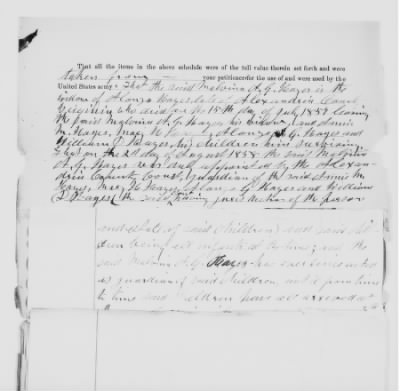 That all the items in the above schedule were of the full value therein set forth and were
taken from your petitioner for the use of and were used by the
United States army; That the said Malvina A. G. Hayes is the
widow of Alonzo Hayes late of Alexandria County
Virginia who died on the 15th day of July 1857 leaving
the said Malvina A. G. Hayes his widow, and Annie
M. Hayes, Alonzo A. G. Hayes and
William D. Hayes, his children him surviving
That on the 2d day of August 1858 the said Malvina
A. G. Hayes was duly appointed by the Alexan-
dria County Court, guardian of the said Annie M.
Hayes, Alonzo G. Hayes and William
D. Hayes the said having of the person
and estate of said children; and said chil-
dren being all infants at the time; and the
said Malvina A. G. Hayes has ever since acted
as guardian of said children, until from time
to time said children have all arrived at